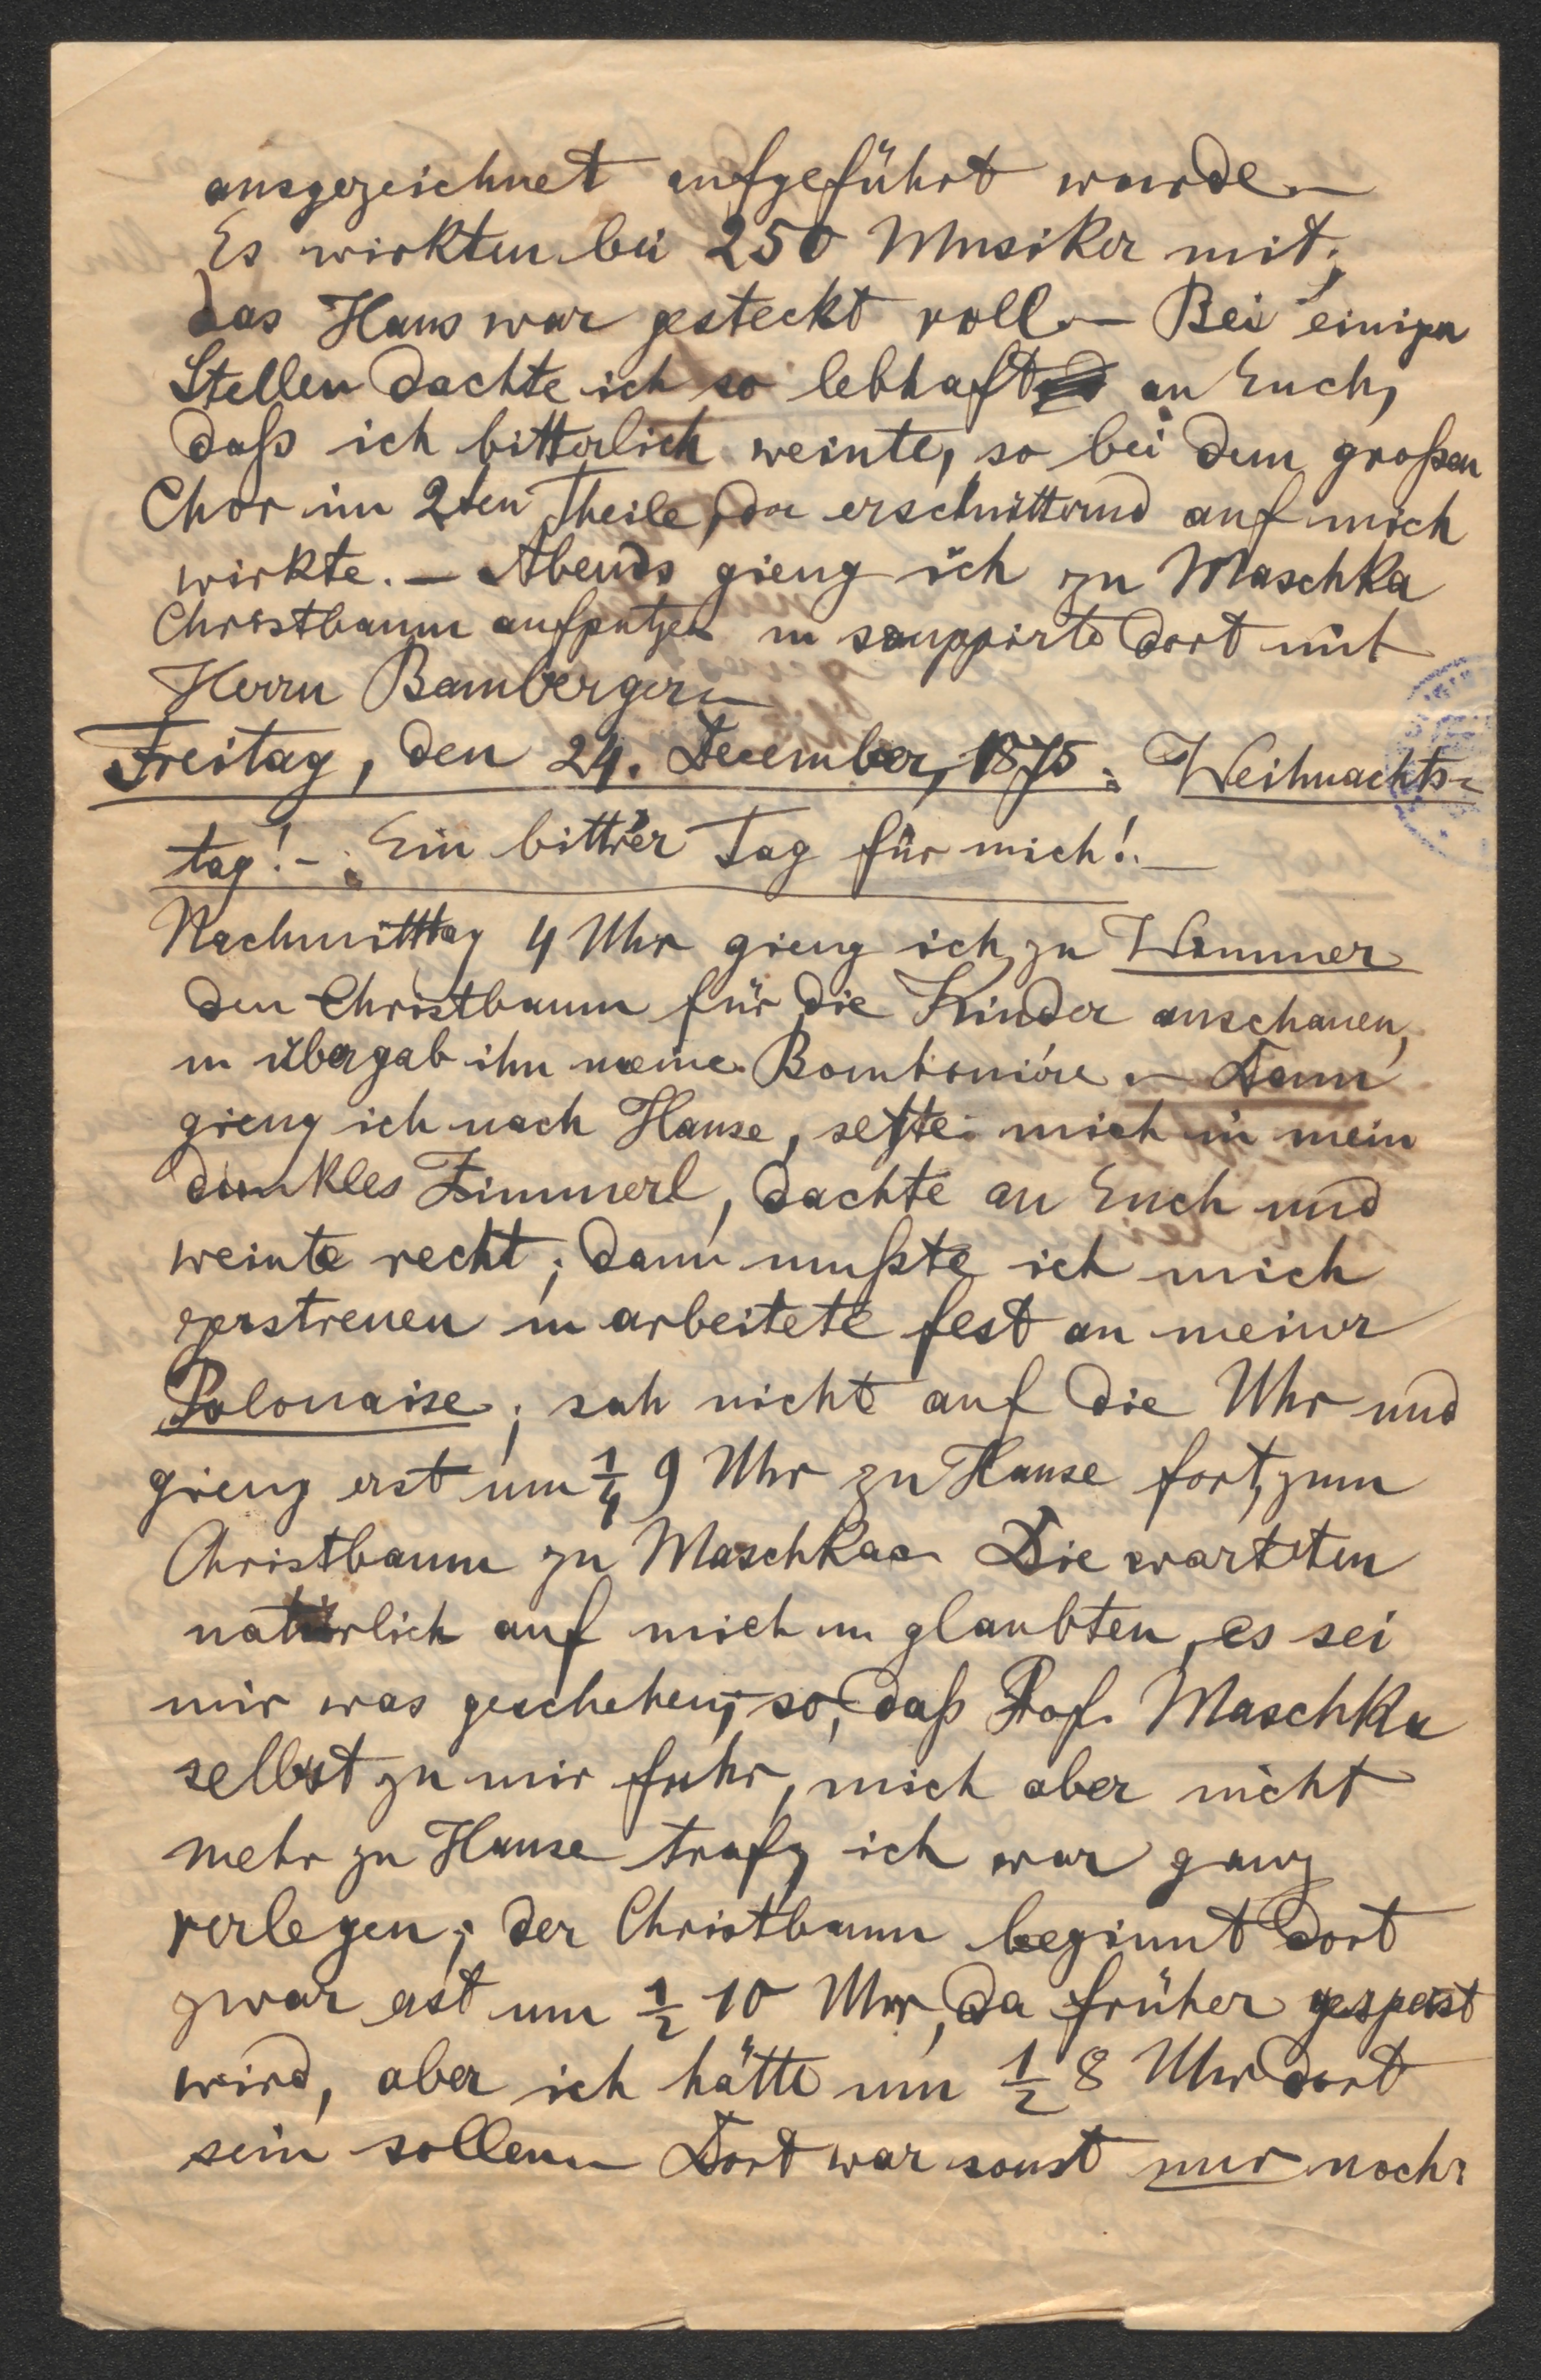 ausgezeichnet aufgeführt wurde. —
Es wirkten bei 250 Musiker mit;
das Haus war gesteckt voll. — Bei einigen
Stellen dachte ich so lebhaft an Euch,
daß ich bitterlich weinte, so bei dem großen
Chor im 2ten Theile, der erschütternd auf mich
wirkte. — Abends gieng ich zu Maschka
Christbaum aufputzen u soupirte dort mit
Herrn Bamberger. —
Freitag, den 24. December, 1875. Weihnachts-
tag! — Ein bittrer Tag für mich! —
Nachmittag 4 Uhr gieng ich zu
den Christbaum für die Kinder anschauen,
u übergab ihn meine Bombonière. — Dann
gieng ich nach Hause, setzte mich in mein
dunkles Zimmerl, dachte an Euch und
weinte recht; dann mußte ich mich
zerstreuen u arbeitete fest an meiner
Polonaise; sah nicht auf die Uhr und
gieng erst um ¼ 9 Uhr zu Hause fort, zum
Christbaum zu Maschka. Die warteten
natürlich auf mich u glaubten, es sei
mir was geschehen; so, daß Prof. Maschka
selbst zu mir fuhr, mich aber nicht
mehr zu Hause traf; ich war ganz
verlegen; der Christbaum beginnt dort
zwar erst um ½ 10 Uhr, da früher gespeist
wird, aber ich hätte um ½ 8 Uhr dort
sein sollen. — Dort war sonst nur noch: